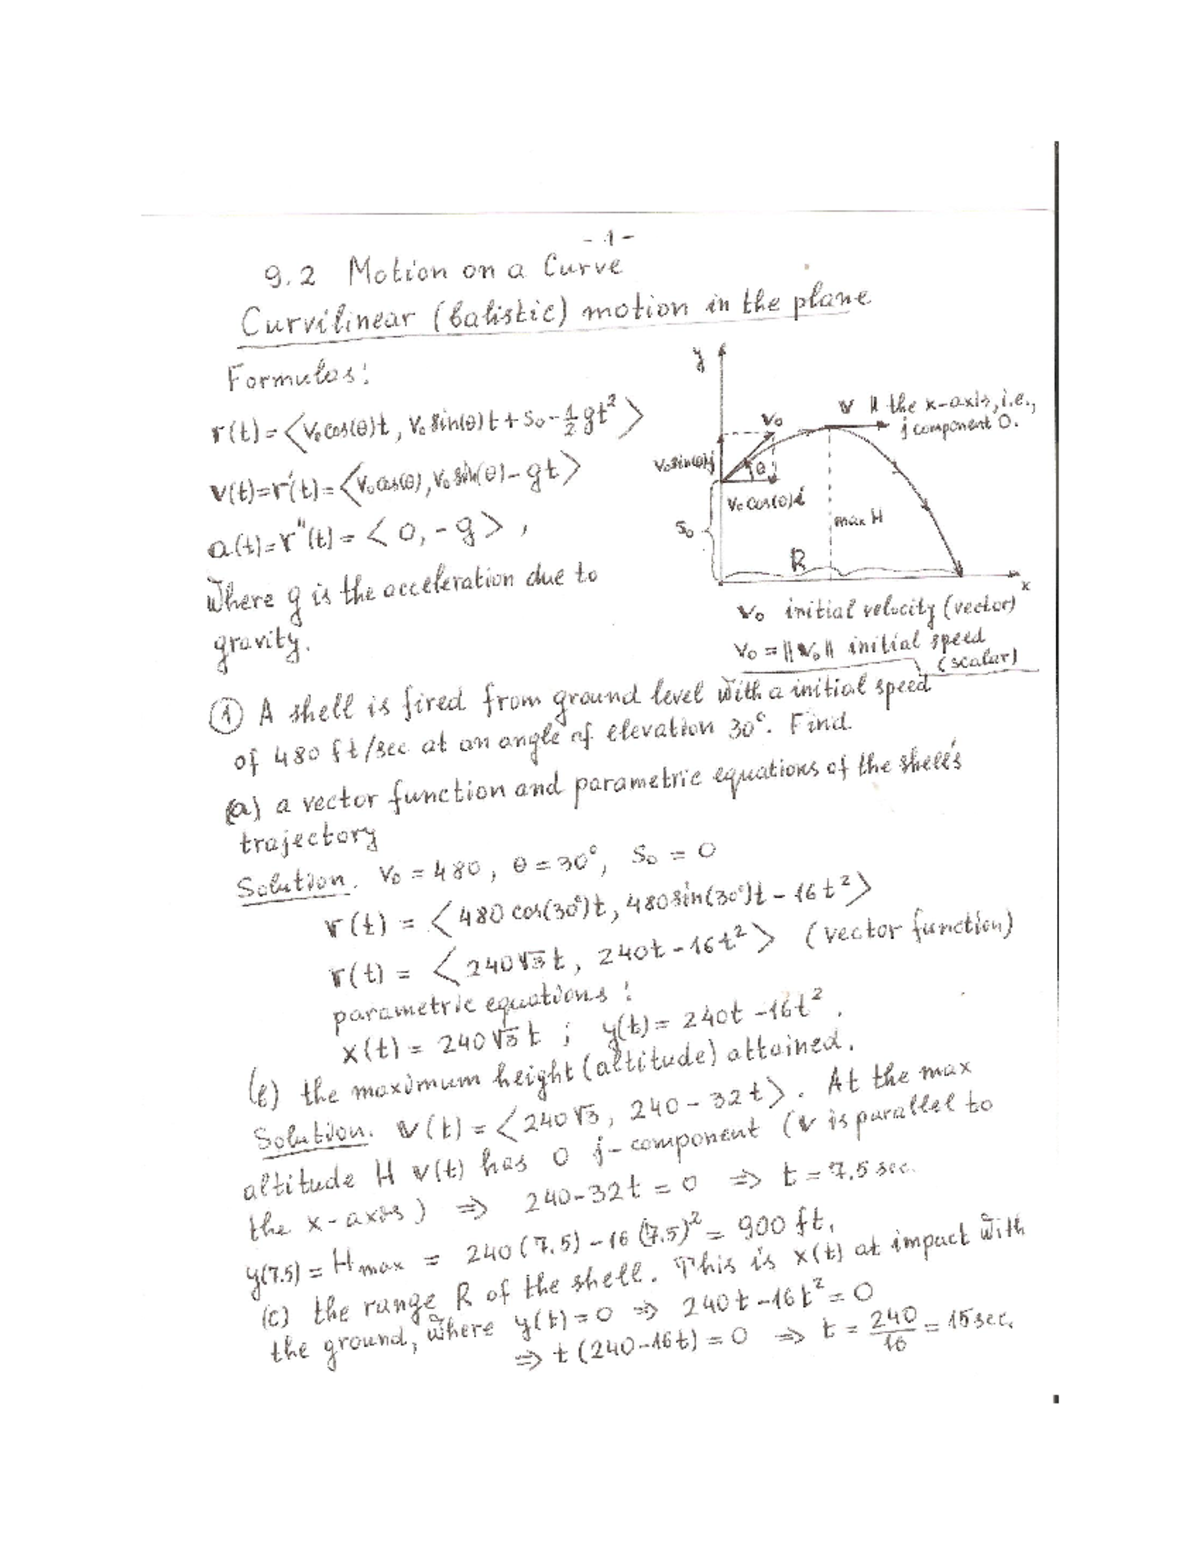 - 1 -
9.2 Motion on a Curve
Curvilinear (balistic) motion in the plane
Formulas:
r(t) = <V₀cos(θ)t, V₀ sin(θ)t + S₀ - ½gt²>
v(t)=r'(t)=<V₀cos(θ), V₀ sin(θ) - gt>
a(t)=r"(t) = <0, -g>,
Where g is the acceleration due to
gravity.
y
V₀
v ∥ the x-axis, i.e.,
j component 0.
V₀sin(θ)j
θ
V₀cos(θ)i
S₀
max H
R
x
v₀ initial velocity (vector)
V₀ = ||v₀|| initial speed
(scalar)
(1) A shell is fired from ground level with a initial speed
of 480 ft/sec at an angle of elevation 30°. Find.
(a) a vector function and parametric equations of the shell's
trajectory
Solution. V₀ = 480, θ = 30°, S₀ = 0
r(t) = <480 cos(30°)t, 480sin(30°)t - 16t²>
r(t) = <240√3t, 240t - 16t²> (vector function)
parametric equations:
x(t) = 240√3t; y(t) = 240t - 16t².
(b) the maximum height (altitude) attained.
Solution. v(t) = <240√3, 240 - 32t>. At the max
altitude H v(t) has 0 j-component (v is parallel to
the x-axis) ⇒ 240-32t = 0 ⇒ t = 7.5 sec.
y(7.5) = Hmax = 240(7.5) - 16(7.5)² = 900 ft.
(c) the range R of the shell. This is x(t) at impact with
the ground, where y(t) = 0 ⇒ 240t - 16t² = 0
⇒ t(240-16t) = 0 ⇒ t = 240/16 = 15 sec.